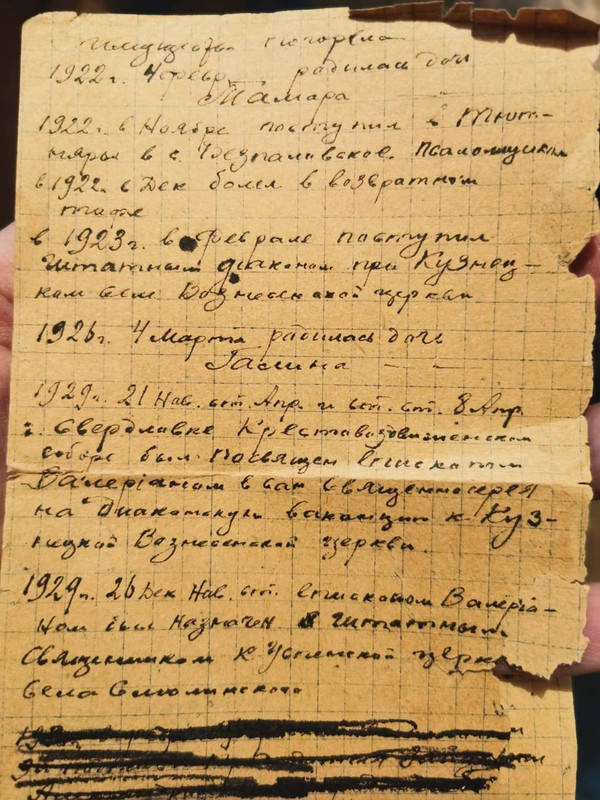 имущество погорело
1922 г. 4 февр родилась доч
Тамара
1922 г. в Ноябре поступил в Тют-
няры в с. Безпаловское. псаломщиком
в 1922 г. с Дек болел в возвратном
тифе
в 1923 г. в Феврале поступил
штатным диаконом при Кузнец-
ком селе Вознесенской церкви
1926 г. 4 Марта родилась дочь
Галина
1929 г. 21 Нов. ст. Апр. и ст. ст. 8 Апр.
г. Свердловке Крестовоздвиженском
соборе был посвящен Епископом
Валеріаном в сан Священноерея
на диаконскую ваканцию к Куз-
нецкой Вознесенской церкви.
1929 г. 26 Дек Нов. ст. Епископом Валеріа-
ном был назначен штатным
Священником к Успенской церкви
села Смолинского